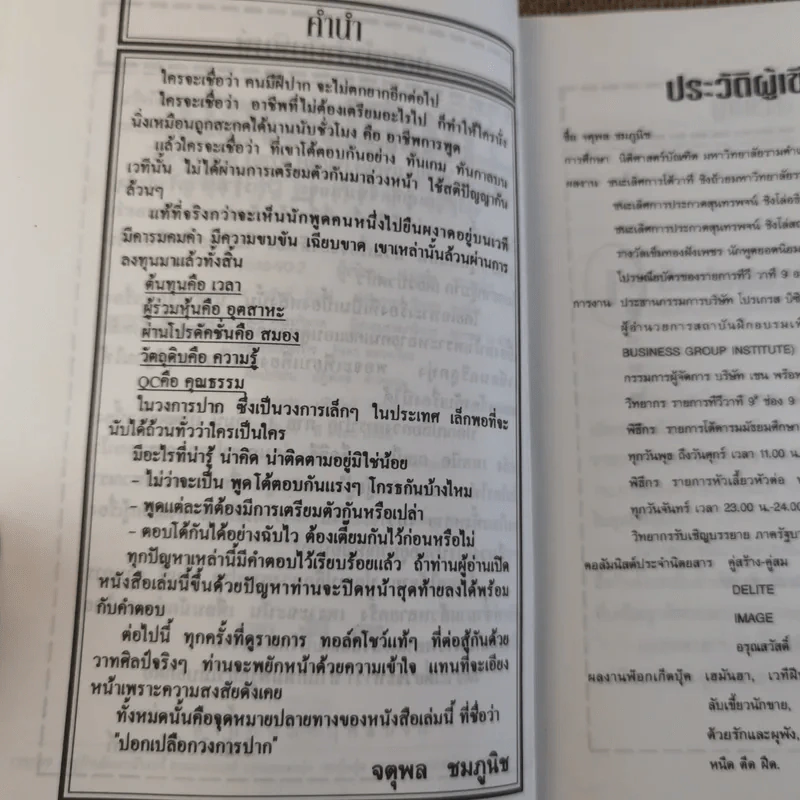 คำนำ
ใครจะเชื่อว่า คนมีฝีปาก จะไม่ตกยากอีกต่อไป
ใครจะเชื่อว่า อาชีพที่ไม่ต้องเตรียมอะไรไป ก็ทำให้ใครนั่ง
นิ่งเหมือนถูกสะกดได้นานนับชั่วโมง คือ อาชีพการพูด
แล้วใครจะเชื่อว่า ที่เขาโต้ตอบกันอย่าง ทันเกม ทันกาลบน
เวทีนั้น ไม่ได้ผ่านการเตรียมตัวกันมาล่วงหน้า ใช้สติปัญญากัน
ล้วนๆ
แท้ที่จริงกว่าจะเห็นนักพูดคนหนึ่งไปยืนผงาดอยู่บนเวที
มีคารมคมคำ มีความขบขัน เฉียบขาด เขาเหล่านั้นล้วนผ่านการ
ลงทุนมาแล้วทั้งสิ้น
ต้นทุนคือ เวลา
ผู้ร่วมหุ้นคือ อุตสาหะ
ผ่านโปรดัคชั่นคือ สมอง
วัตถุดิบคือ ความรู้
QCคือ คุณธรรม
ในวงการปาก ซึ่งเป็นวงการเล็กๆ ในประเทศ เล็กพอที่จะ
นับได้ถ้วนทั่วว่าใครเป็นใคร
มีอะไรที่น่ารู้ น่าคิด น่าติดตามอยู่มิใช่น้อย
- ไม่ว่าจะเป็น พูดโต้ตอบกันแรงๆ โกรธกันบ้างไหม
- พูดแต่ละทีต้องมีการเตรียมตัวกันหรือเปล่า
- ตอบโต้กันได้อย่างฉับไว ต้องเตี๊ยมกันไว้ก่อนหรือไม่
ทุกปัญหาเหล่านี้มีคำตอบไว้เรียบร้อยแล้ว ถ้าท่านผู้อ่านเปิด
หนังสือเล่มนี้ขึ้นด้วยปัญหาท่านจะปิดหน้าสุดท้ายลงได้พร้อม
กับคำตอบ
ต่อไปนี้ ทุกครั้งที่ดูรายการ ทอล์คโชว์แท้ๆ ที่ต่อสู้กันด้วย
วาทศิลป์จริงๆ ท่านจะพยักหน้าด้วยความเข้าใจ แทนที่จะเอียง
หน้าเพราะความสงสัยดังเคย
ทั้งหมดนั้นคือจุดหมายปลายทางของหนังสือเล่มนี้ ที่ชื่อว่า
"ปอกเปลือกวงการปาก"
จตุพล ชมภูนิช
ประวัติผู้เขี
ชื่อ จตุพล ชมภูนิช
การศึกษา นิติศาสตร์บัณฑิต มหาวิทยาลัยรามคำแ
ผลงาน ชนะเลิศการโต้วาที ชิงถ้วยมหาวิทยาลัยรา
ชนะเลิศการประกวดสุนทรพจน์ ชิงโล่อธิ
ชนะเลิศการประกวดสุนทรพจน์ ชิงโล่สถ
รางวัลเข็มทองฝังเพชร นักพูดยอดนิยม
โปรษณียบัตรของรายการทีวี วาที 9 อ
การงาน ประธานกรรมการบริษัท โปรเกรส บิซิ
ผู้อำนวยการสถาบันฝึกอบรมเพื่
BUSINESS GROUP INSTITUTE)
กรรมการผู้จัดการ บริษัท เซน พร้อพ
วิทยากร รายการทีวีวาที 9" ช่อง 9
พิธีกร รายการโต้คารมมัธยมศึกษา
ทุกวันพุธ ถึงวันศุกร์ เวลา 11.00 น.
พิธีกร รายการหัวเลี้ยวหัวต่อ
ทุกวันจันทร์ เวลา 23.00 น.-24.00
วิทยากรรับเชิญบรรยาย ภาครัฐบา
คอลัมนิสต์ประจำนิตยสาร คู่สร้าง-คู่สม
DELITE
IMAGE
อรุณสวัสดิ์
ผลงานพ๊อกเก็ตบุ๊ค เฮมันฮา, เวทีฝี
ลับเขี้ยวนักขาย,
ด้วยรักและผุพัง,
หนีด ดีด ฝีด.